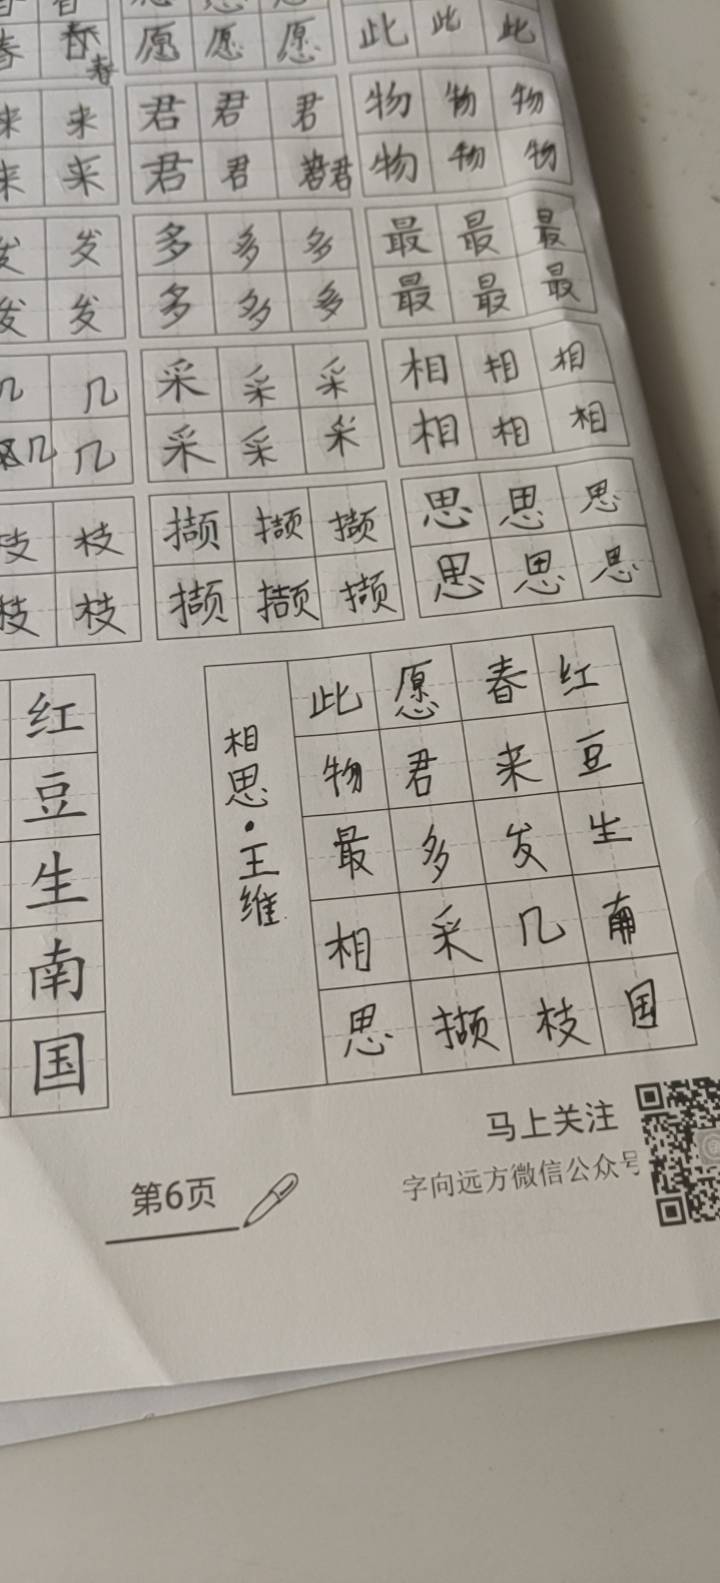 春 春 愿 愿 愿 此 此 此
春
来 来 君 君 君 物 物 物
来 来 君 君 君 物 物 物
发 发 多 多 多 最 最 最
发 发 多 多 多 最 最 最
几 几 采 采 采 相 相 相
几 几 采 采 采 相 相 相
枝 枝 撷 撷 撷 思 思 思
枝 枝 撷 撷 撷 思 思 思
红
豆
生
南
国
相思·王维
红豆生南国
春来发几枝
愿君多采撷
此物最相思
马上关注
字向远方微信公众号
第6页